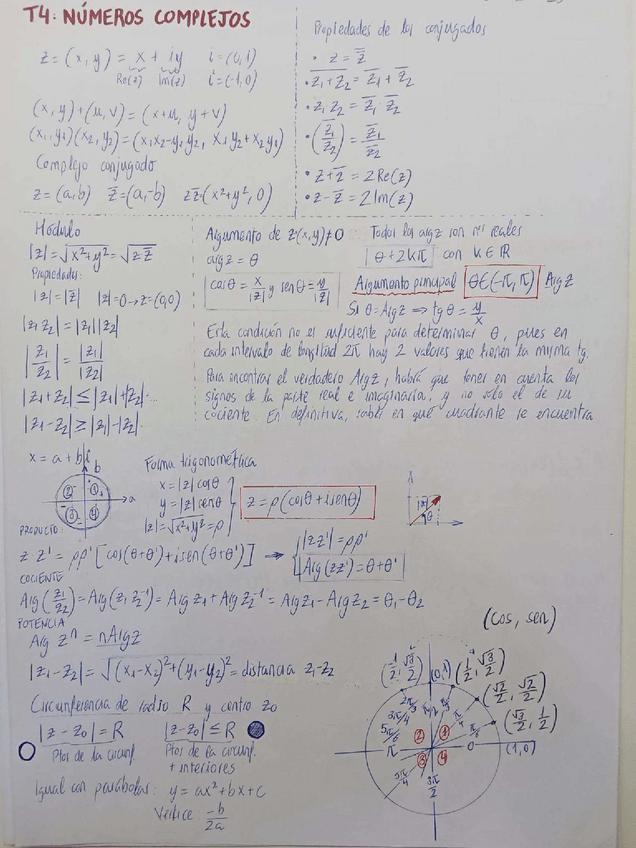 T4: NÚMEROS COMPLEJOS
z = (x, y) = x + iy    i = (0,1)
Re(z)  Im(z)    i² = (-1,0)
(x, y) + (u, v) = (x+u, y+v)
(x₁,y₁)(x₂,y₂) = (x₁x₂-y₁y₂, x₁y₂+x₂y₁)
Complejo conjugado
z = (a,b)    z̅ = (a,-b)    zz̅ = (x²+y², 0)
Propiedades de los conjugados
• z = z̿
• \overline{z₁+z₂} = z̅₁ + z̅₂
• \overline{z₁z₂} = z̅₁ · z̅₂
• \overline{(z₁/z₂)} = z̅₁/z̅₂
• z + z̅ = 2Re(z)
• z - z̅ = 2Im(z)
Módulo
|z| = √(x²+y²) = √(zz̅)
Propiedades:
|z| = |z̅|    |z| = 0 → z = (0,0)
|z₁z₂| = |z₁||z₂|
|z₁/z₂| = |z₁|/|z₂|
|z₁+z₂| ≤ |z₁|+|z₂|...
|z₁-z₂| ≥ |z₁|-|z₂|.
Argumento de z(x,y) ≠ 0
arg z = θ
cosθ = x/|z| y senθ = y/|z|
Todos los arg z son nos reales
θ + 2kπ con k ∈ ℝ
Argumento principal θ ∈ (-π, π) Arg z
Si θ = Arg z ⇒ tgθ = y/x
Esta condición no es suficiente para determinar θ, pues en
cada intervalo de longitud 2π hay 2 valores que tienen la misma tg.
Para encontrar el verdadero Arg z, habrá que tener en cuenta los
signos de la parte real e imaginaria, y no sólo el de su
cociente. En definitiva, saber en qué cuadrante se encuentra
x = a + bi
b
a
2 1
3 4
Forma trigonométrica
x = |z| cosθ
y = |z| senθ
|z| = √(x²+y²) = ρ
z = ρ(cosθ + isenθ)
|z|
θ
PRODUCTO:
z·z' = ρρ'[cos(θ+θ') + isen(θ+θ')] → |zz'| = ρρ'
Arg(zz') = θ+θ'
COCIENTE
Arg(z₁/z₂) = Arg(z₁z₂⁻¹) = Arg z₁ + Arg z₂⁻¹ = Arg z₁ - Arg z₂ = θ₁ - θ₂
POTENCIA
Arg zⁿ = nArg z
|z₁-z₂| = √((x₁-x₂)²+(y₁-y₂)²) = distancia z₁-z₂
Circunferencia de radio R y centro z₀
|z - z₀| = R    |z - z₀| ≤ R
Ptos de la circunf.    Ptos de la circunf.
+ interiores
Igual con parábolas: y = ax² + bx + c
Vértice: -b/2a
(cos, sen)
(-1/2, √3/2)    (0,1)    (1/2, √3/2)
(√2/2, √2/2)
(√3/2, 1/2)
(1,0)
2π/3    π/2    π/3
3π/4    π/4
5π/6    π/6
π    0
5π/4    3π/2
2 1
3 4